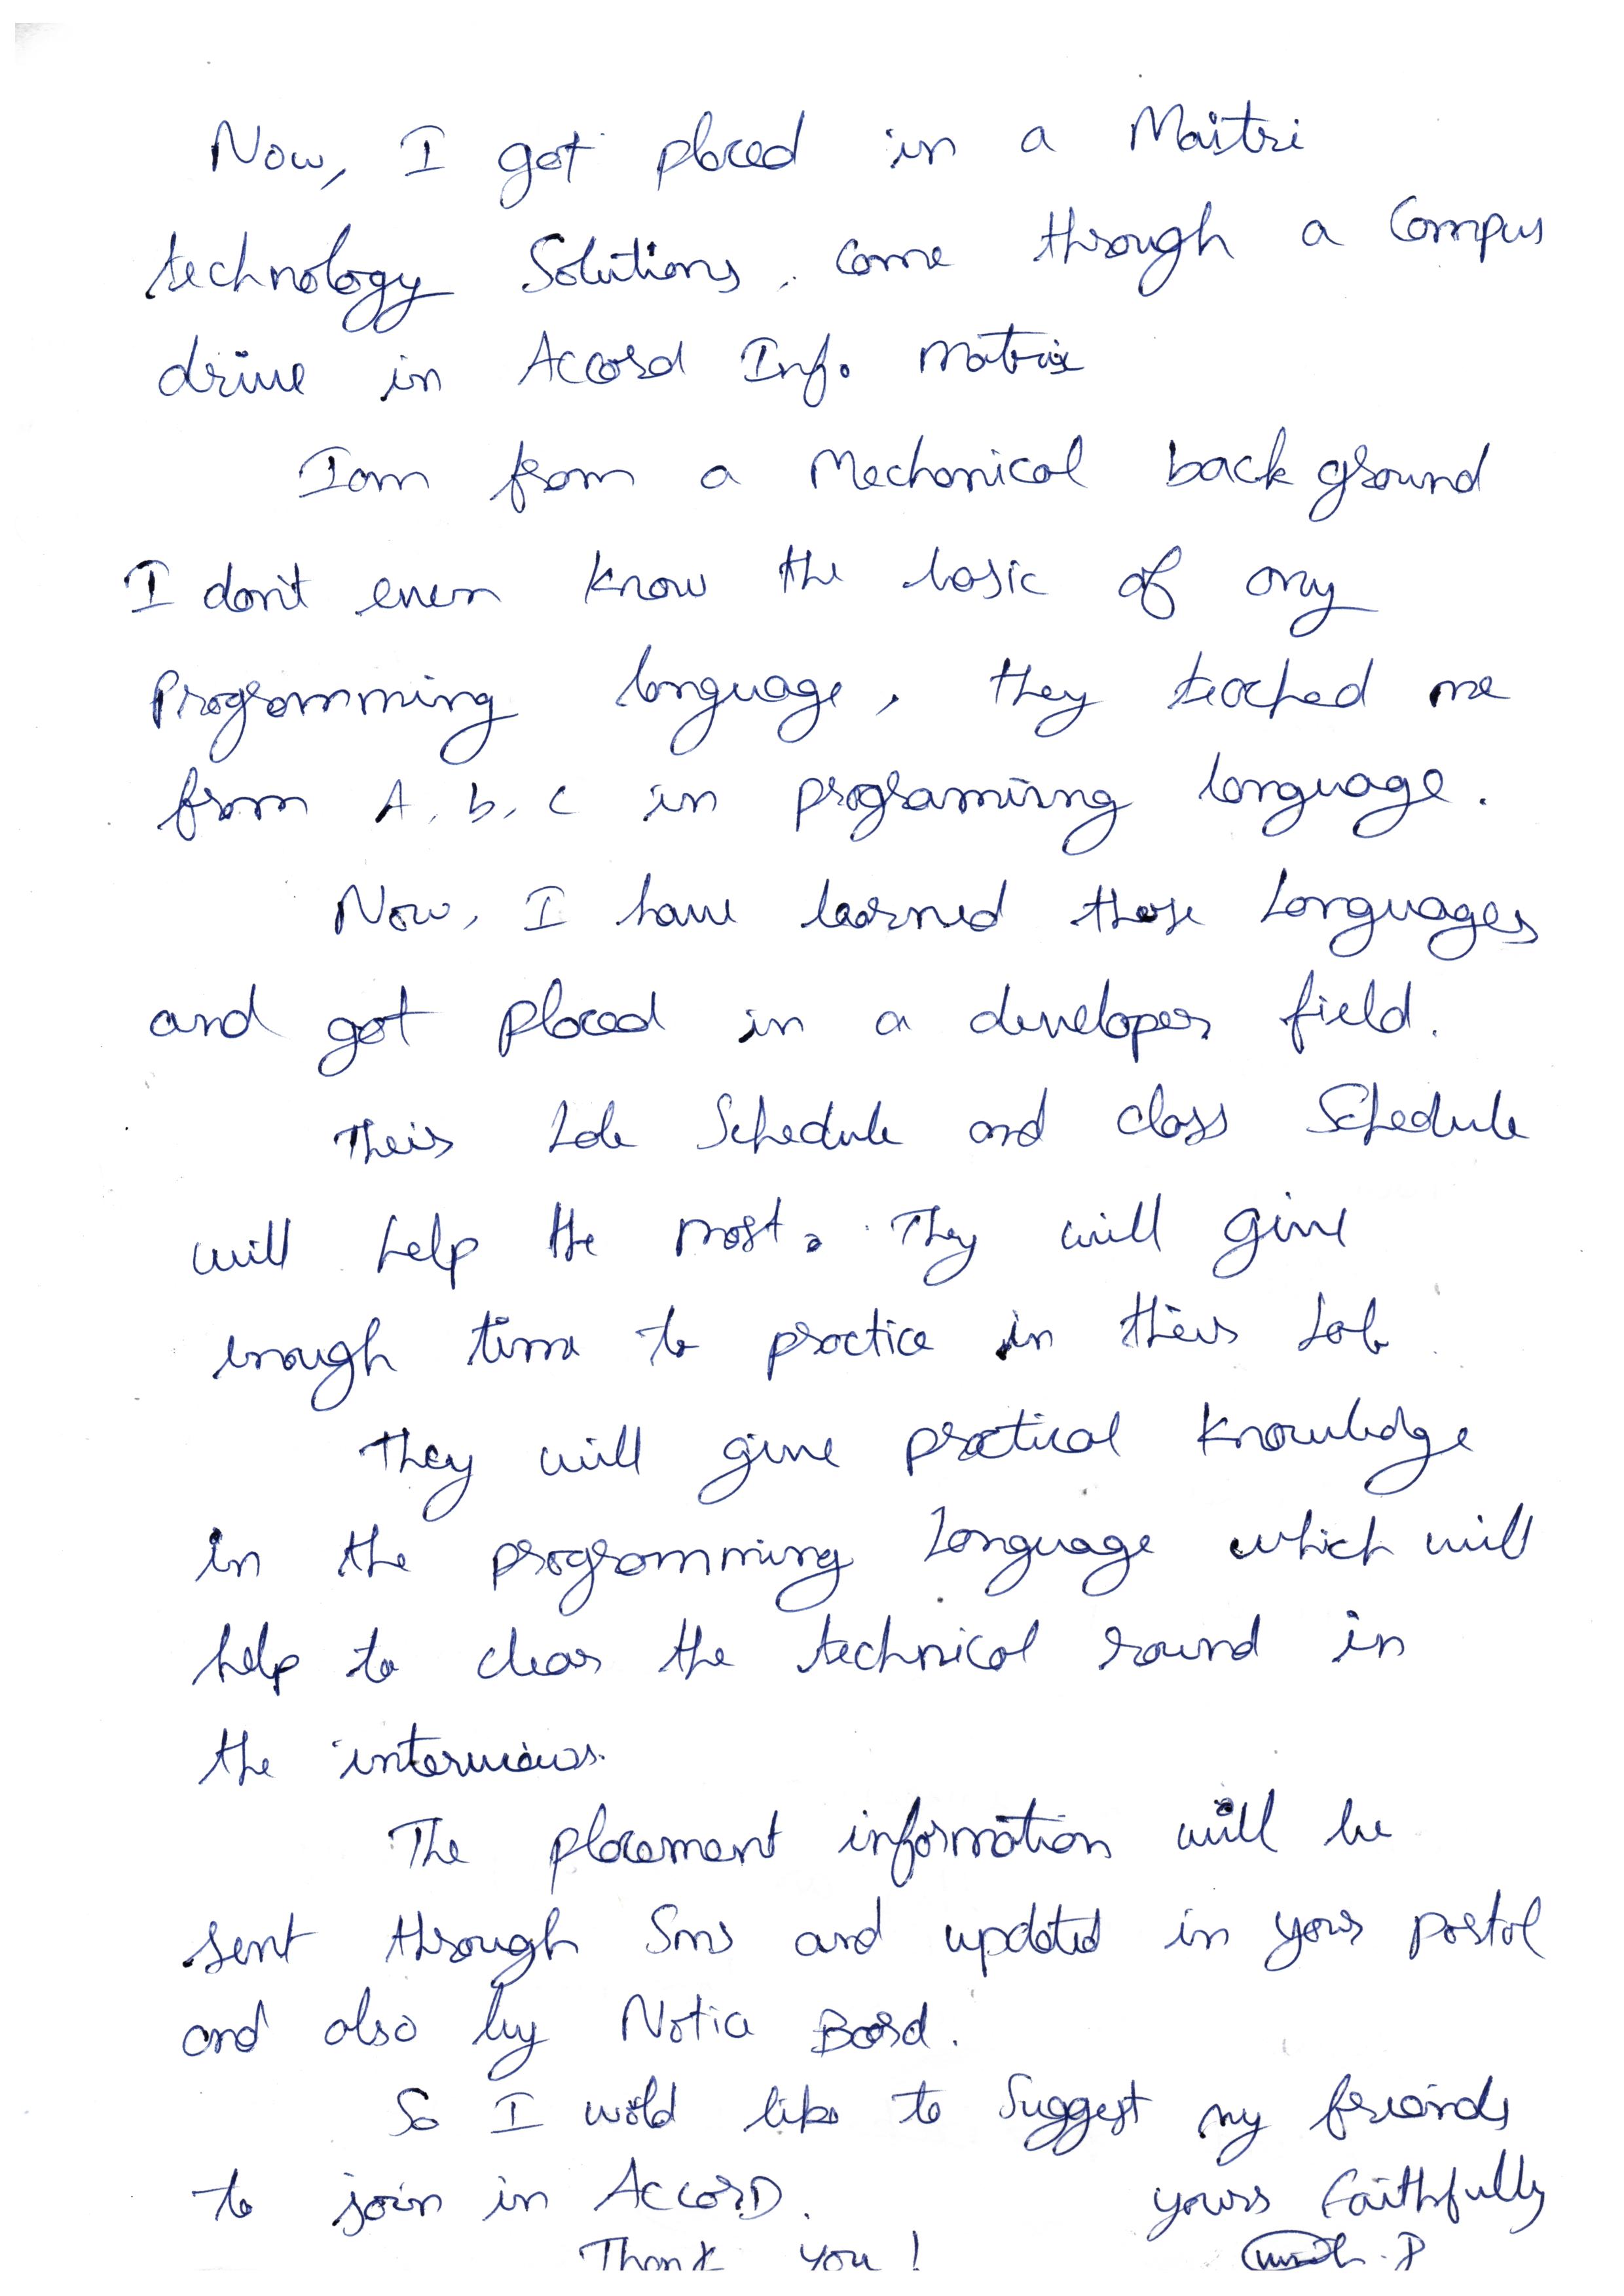 Now, I got placed in a Maitri
technology Solutions, came through a Campus
drive in Accord Info. matrix
I am from a Mechanical back ground
I don't even know the basic of any
Programming language, they teached me
from A, b, c in programing language.
Now, I have learned those Languages
and got placed in a developer field.
Their Lab Schedule and class Schedule
will help the most. They will give
enough time to practice in their Lab
They will give practical knowledge
in the programming Language which will
help to clear the technical round in
the interviews.
The placement information will be
sent through Sms and updated in your portal
and also by Notice Board.
So I would like to Suggest my friends
to join in AccorD. yours faithfully
Thank you!